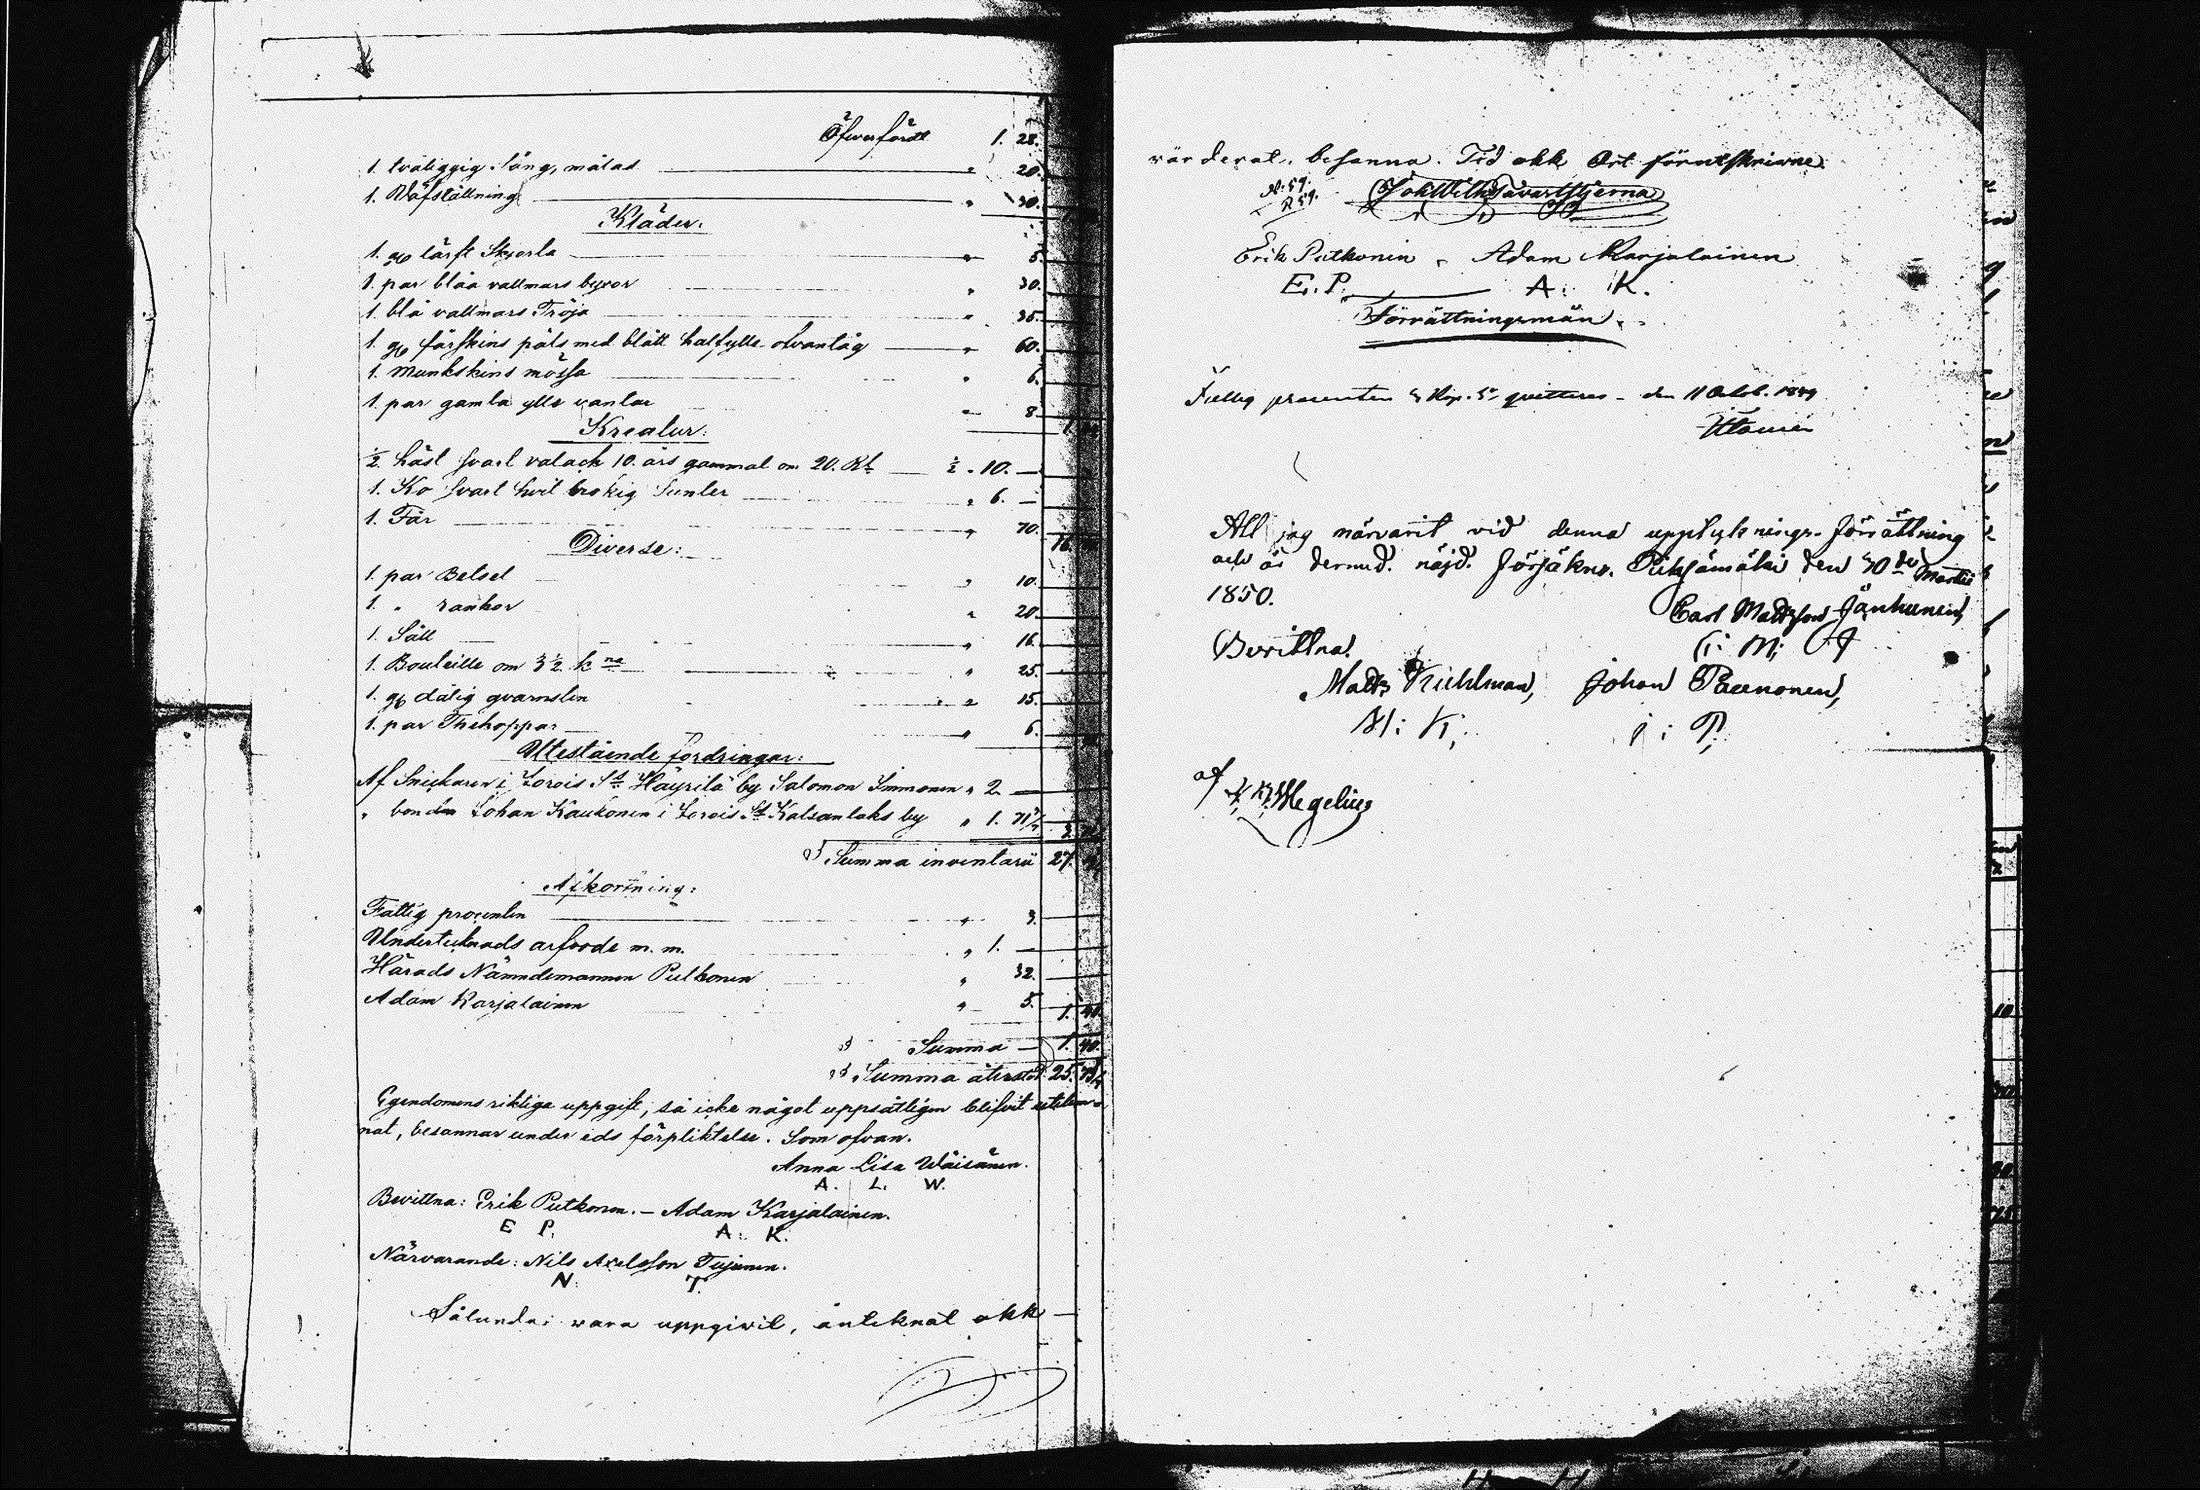 Öfwerfördt 1. 28.
1. tväliggig Säng, målad " 20.
1. Väfställning " 30.
Kläder.
1. gl lärft Skjorta " 5.
1. par blåa vallmars byxor " 30.
1. blå vallmars Tröja " 35.
1. gl fårskins päls med blått halfylle ofvantåg " 60.
1. Munkskins mössa " 6.
1. par gamla ylle vantar " 8.
Kreatur:
½ häst svart valack 10. års gammal om 20. Rb ½ " 10. —
1. Ko svart hvit brokig Sunler " 6. —
1. Får " 70.
Diverse:
1. par Betsel " 10.
1. " rankor " 20.
1. Såll " 16.
1. Bouteille om 3½ kne " 25.
1. gl dålig qvarnsten " 15.
1. par Thekoppar " 6.
Utestående fordringar:
Af Snickaren i Jorois Sn Häyrilä by Salomon Immonen " 2. —
" bonden Johan Kaukonen i Jorois Sn Kalsanlaks by " 1. 71
Summa inventarii 27.
Afkortning:
Fattig procenten " 3.
Undertecknads arfvode m. m. " 1. —
Härads Nämndemannen Putkonen " 32.
Adam Karjalainen " 5. 1. 40.
Summa — 1. 40.
Summa återstod 25.
Egendomens riktiga uppgift, så icke något uppsåtligen blifvit utelem-
nat, besannar under eds förpliktelse. Som ofvan.
Anna Lisa Wäisänen.
A. L. W.
Bevittna: Erik Putkonen. — Adam Karjalainen.
E P. A: K.
Närvarande: Nils Axelsson Tujunen.
N. T.
Sålunda vara uppgivit, anteknat okk
värderat, besanna. Tid okk Ort förutskrivne
Erik Putkonin, Adam Karjalainen
E. P. A: K.
Förrättningsmän.
Fattig procenten 3 Kop. Sr qvitteras — den 11 Octob. 1849
Att jag närvarit vid denna uppteknings-förrättning
och är dermed nöjd. försäkrar. Pieksämäki den 30de Martii
1850. Carl Mattsson Jänhunen,
C: M: J
Bevittna.
Matts Kuhlman, Johan Paunonen,
M: K: J: P.
af
Hegelius